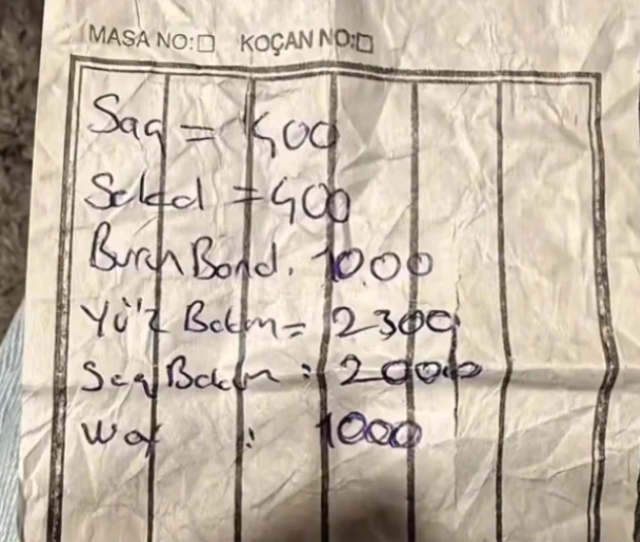 MASA NO:☐ KOÇAN NO:☐
Saq = 400
Sakal = 400
Burun Band. 1000
Yüz Bakım = 2300
Saq Bakım : 2000
Wax : 1000